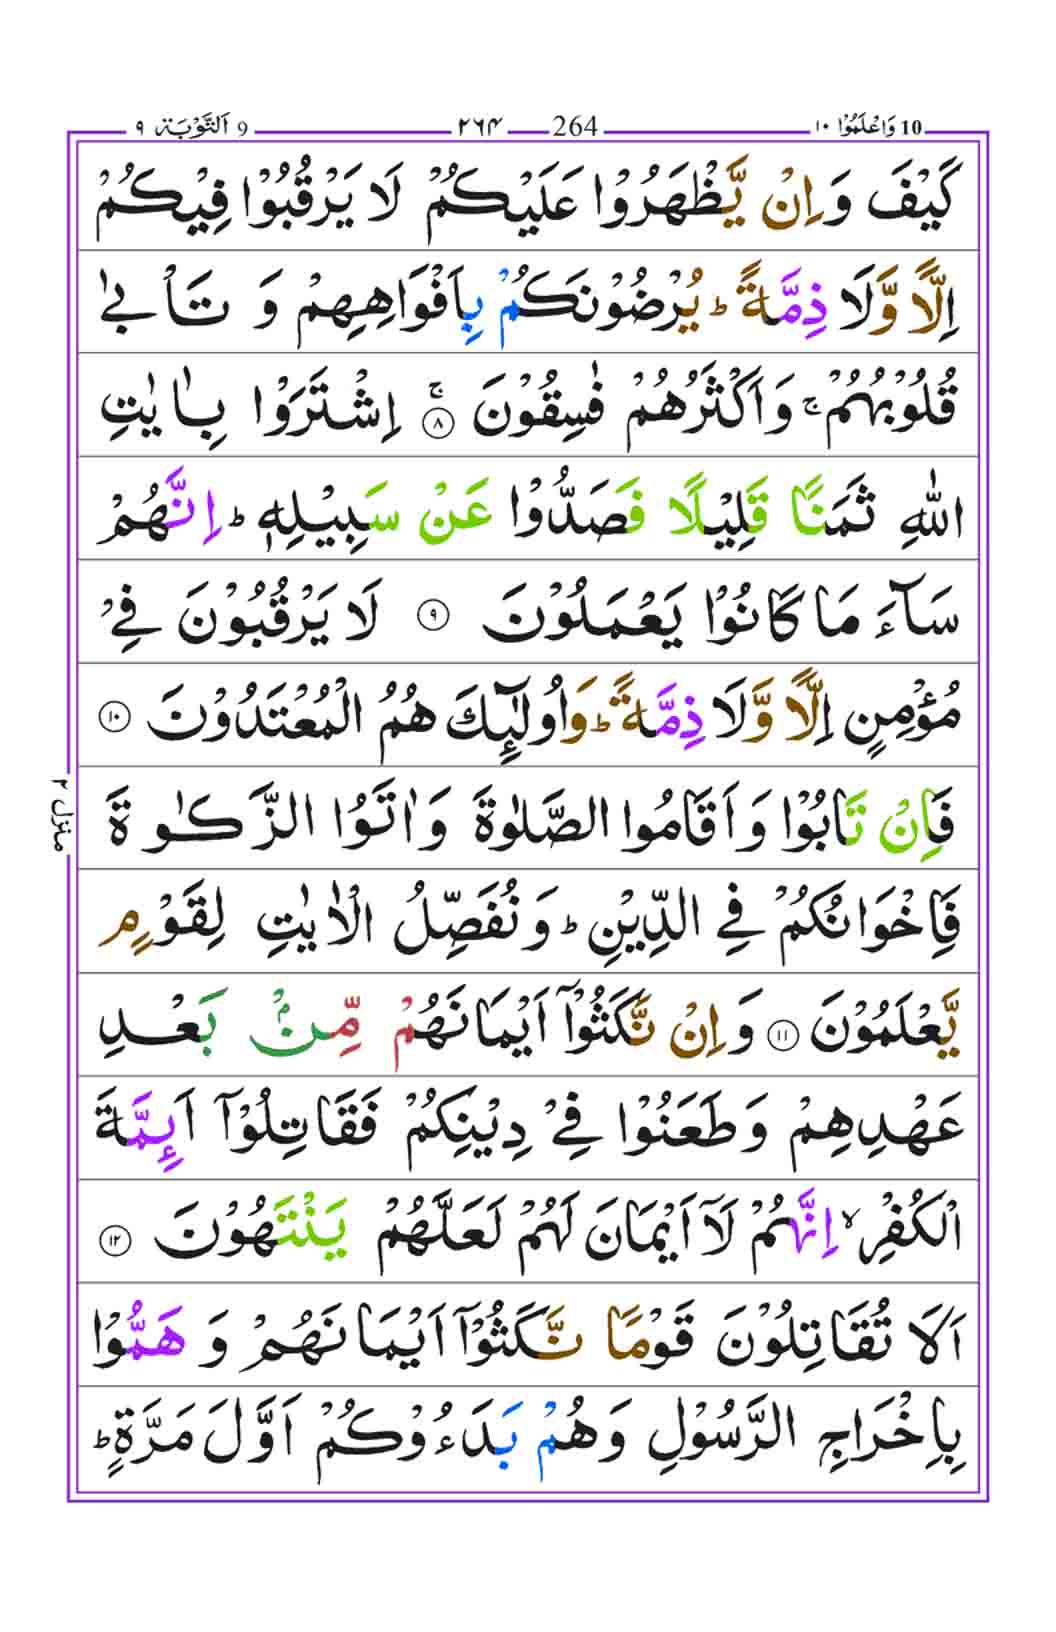 10 وَاعْلَمُوْا ١٠ 264 ٢٦٤ 9 اَلتَّوْبَة ٩
كَيْفَ وَاِنْ يَّظْهَرُوْا عَلَيْكُمْ لَا يَرْقُبُوْا فِيْكُمْ
اِلًّا وَّلَا ذِمَّةً ؕ يُرْضُوْنَكُمْ بِاَفْوَاهِهِمْ وَ تَاْبٰى
قُلُوْبُهُمْ ۚ وَاَكْثَرُهُمْ فٰسِقُوْنَ ۚ ۝٨ اِشْتَرَوْا بِاٰيٰتِ
اللّٰهِ ثَمَنًا قَلِيْلًا فَصَدُّوْا عَنْ سَبِيْلِهٖ ؕ اِنَّهُمْ
سَآءَ مَا كَانُوْا يَعْمَلُوْنَ ۝٩ لَا يَرْقُبُوْنَ فِيْ
مُؤْمِنٍ اِلًّا وَّلَا ذِمَّةً ؕ وَاُولٰٓئِكَ هُمُ الْمُعْتَدُوْنَ ۝١٠
فَاِنْ تَابُوْا وَ اَقَامُوا الصَّلٰوةَ وَ اٰتَوُا الزَّكٰوةَ
فَاِخْوَانُكُمْ فِي الدِّيْنِ ؕ وَ نُفَصِّلُ الْاٰيٰتِ لِقَوْمٍ
يَّعْلَمُوْنَ ۝١١ وَ اِنْ نَّكَثُوْٓا اَيْمَانَهُمْ مِّنْۢ بَعْدِ
عَهْدِهِمْ وَ طَعَنُوْا فِيْ دِيْنِكُمْ فَقَاتِلُوْٓا اَئِمَّةَ
الْكُفْرِ ۙ اِنَّهُمْ لَآ اَيْمَانَ لَهُمْ لَعَلَّهُمْ يَنْتَهُوْنَ ۝١٢
اَلَا تُقَاتِلُوْنَ قَوْمًا نَّكَثُوْٓا اَيْمَانَهُمْ وَ هَمُّوْا
بِاِخْرَاجِ الرَّسُوْلِ وَهُمْ بَدَءُوْكُمْ اَوَّلَ مَرَّةٍ ؕ
منزل ٢